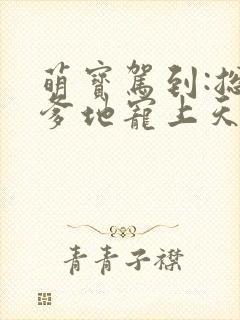 萌寶駕到:總
爹地寵上天
青青子襟